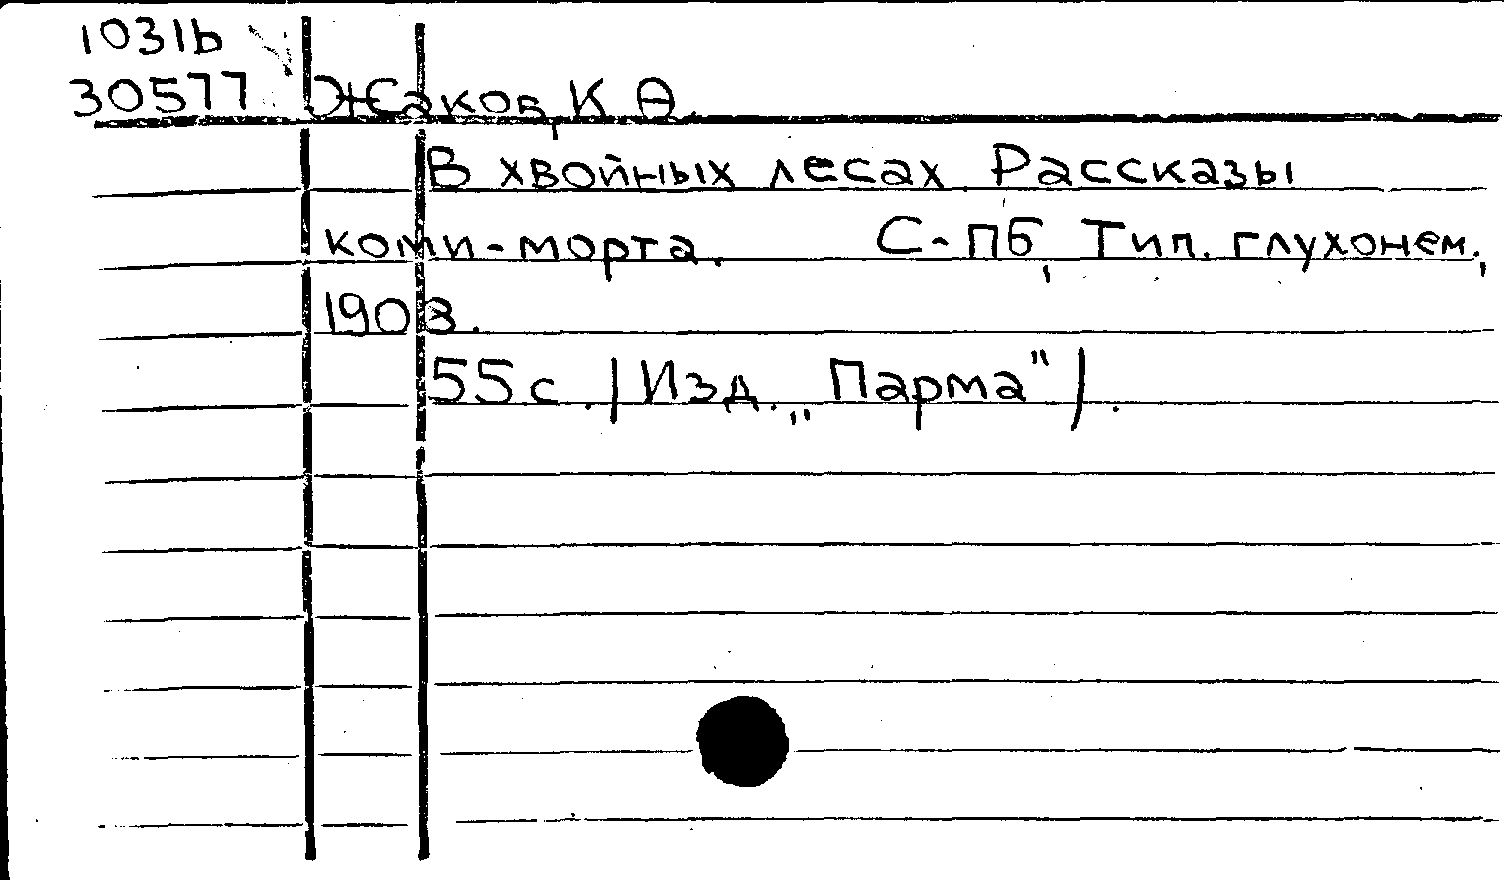 1031b
30577 Жаков, К Ѳ.
В хвойных лесах. Рассказы
коми-морта. С-пб, Тип. глухонем.,
1908.
55 с. / Изд. „Парма" /.